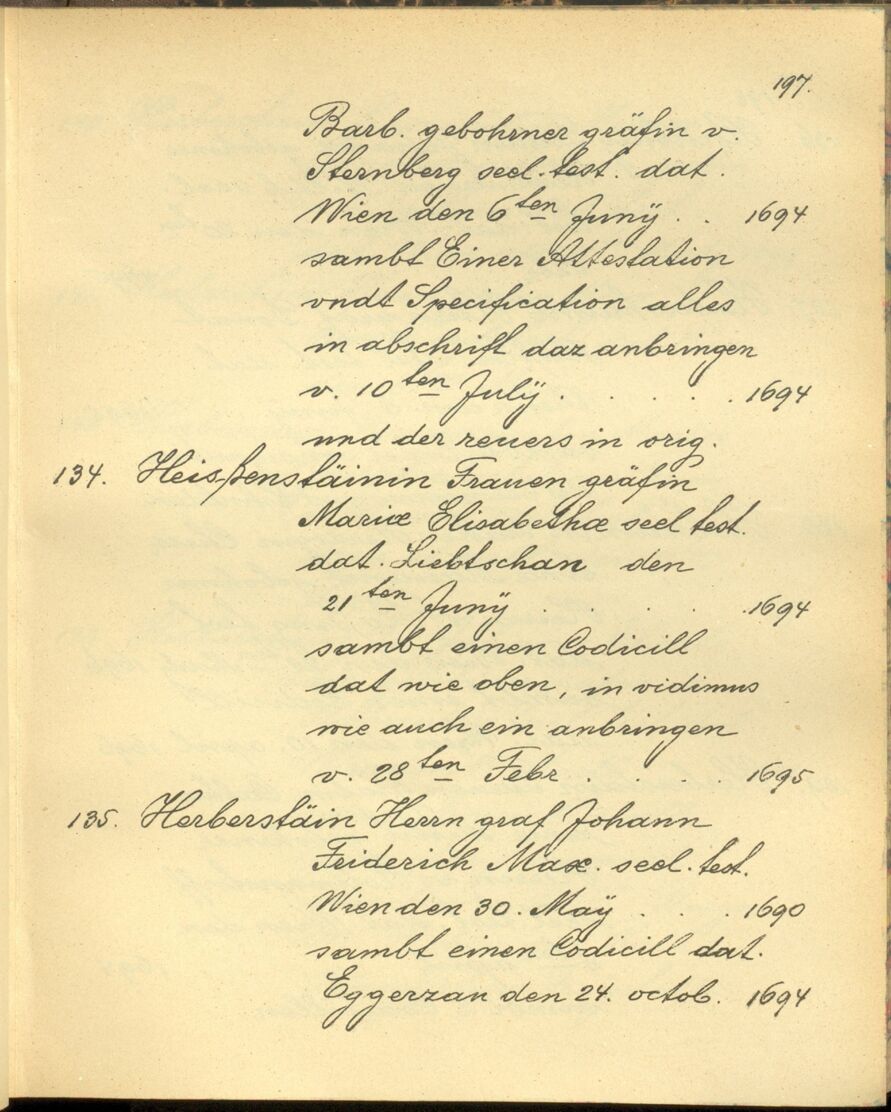 197.
Barb. gebohrner gräfin v.
Sternberg seel. test. dat.
Wien den 6ten Junÿ . . 1694
sambt Einer Attestation
vndt Specification alles
in abschrift daz anbringen
v. 10ten Julÿ . . . . . 1694
und der reuers in orig.
134. Heisßenstäinin Frauen gräfin
Mariæ Elisabethæ seel test.
dat. Liebtschan den
21ten Junÿ . . . . . 1694
sambt einen Codicill
dat wie oben, in vidimus
wie auch ein anbringen
v. 28ten Febr . . . . 1695
135. Herberstäin Herrn graf Johann
Friderich Max. seel. test.
Wien den 30. Maÿ . . . 1690
sambt einen Codicill dat.
Eggerzau den 24. octob. 1694